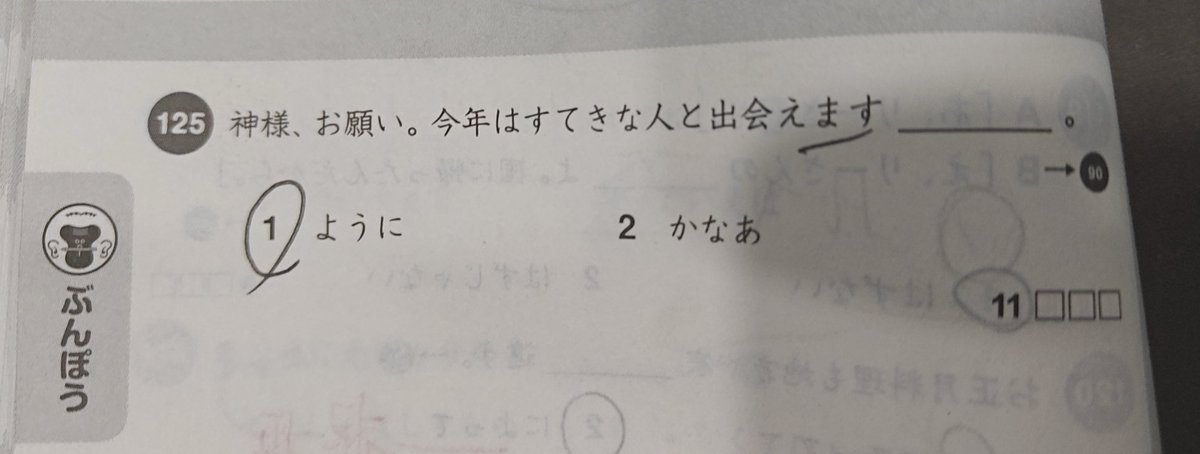 125 神様、お願い。今年はすてきな人と出会えます＿＿＿＿＿＿。
→90
1 ように 2 かなあ
11□□□
ぶんぽう